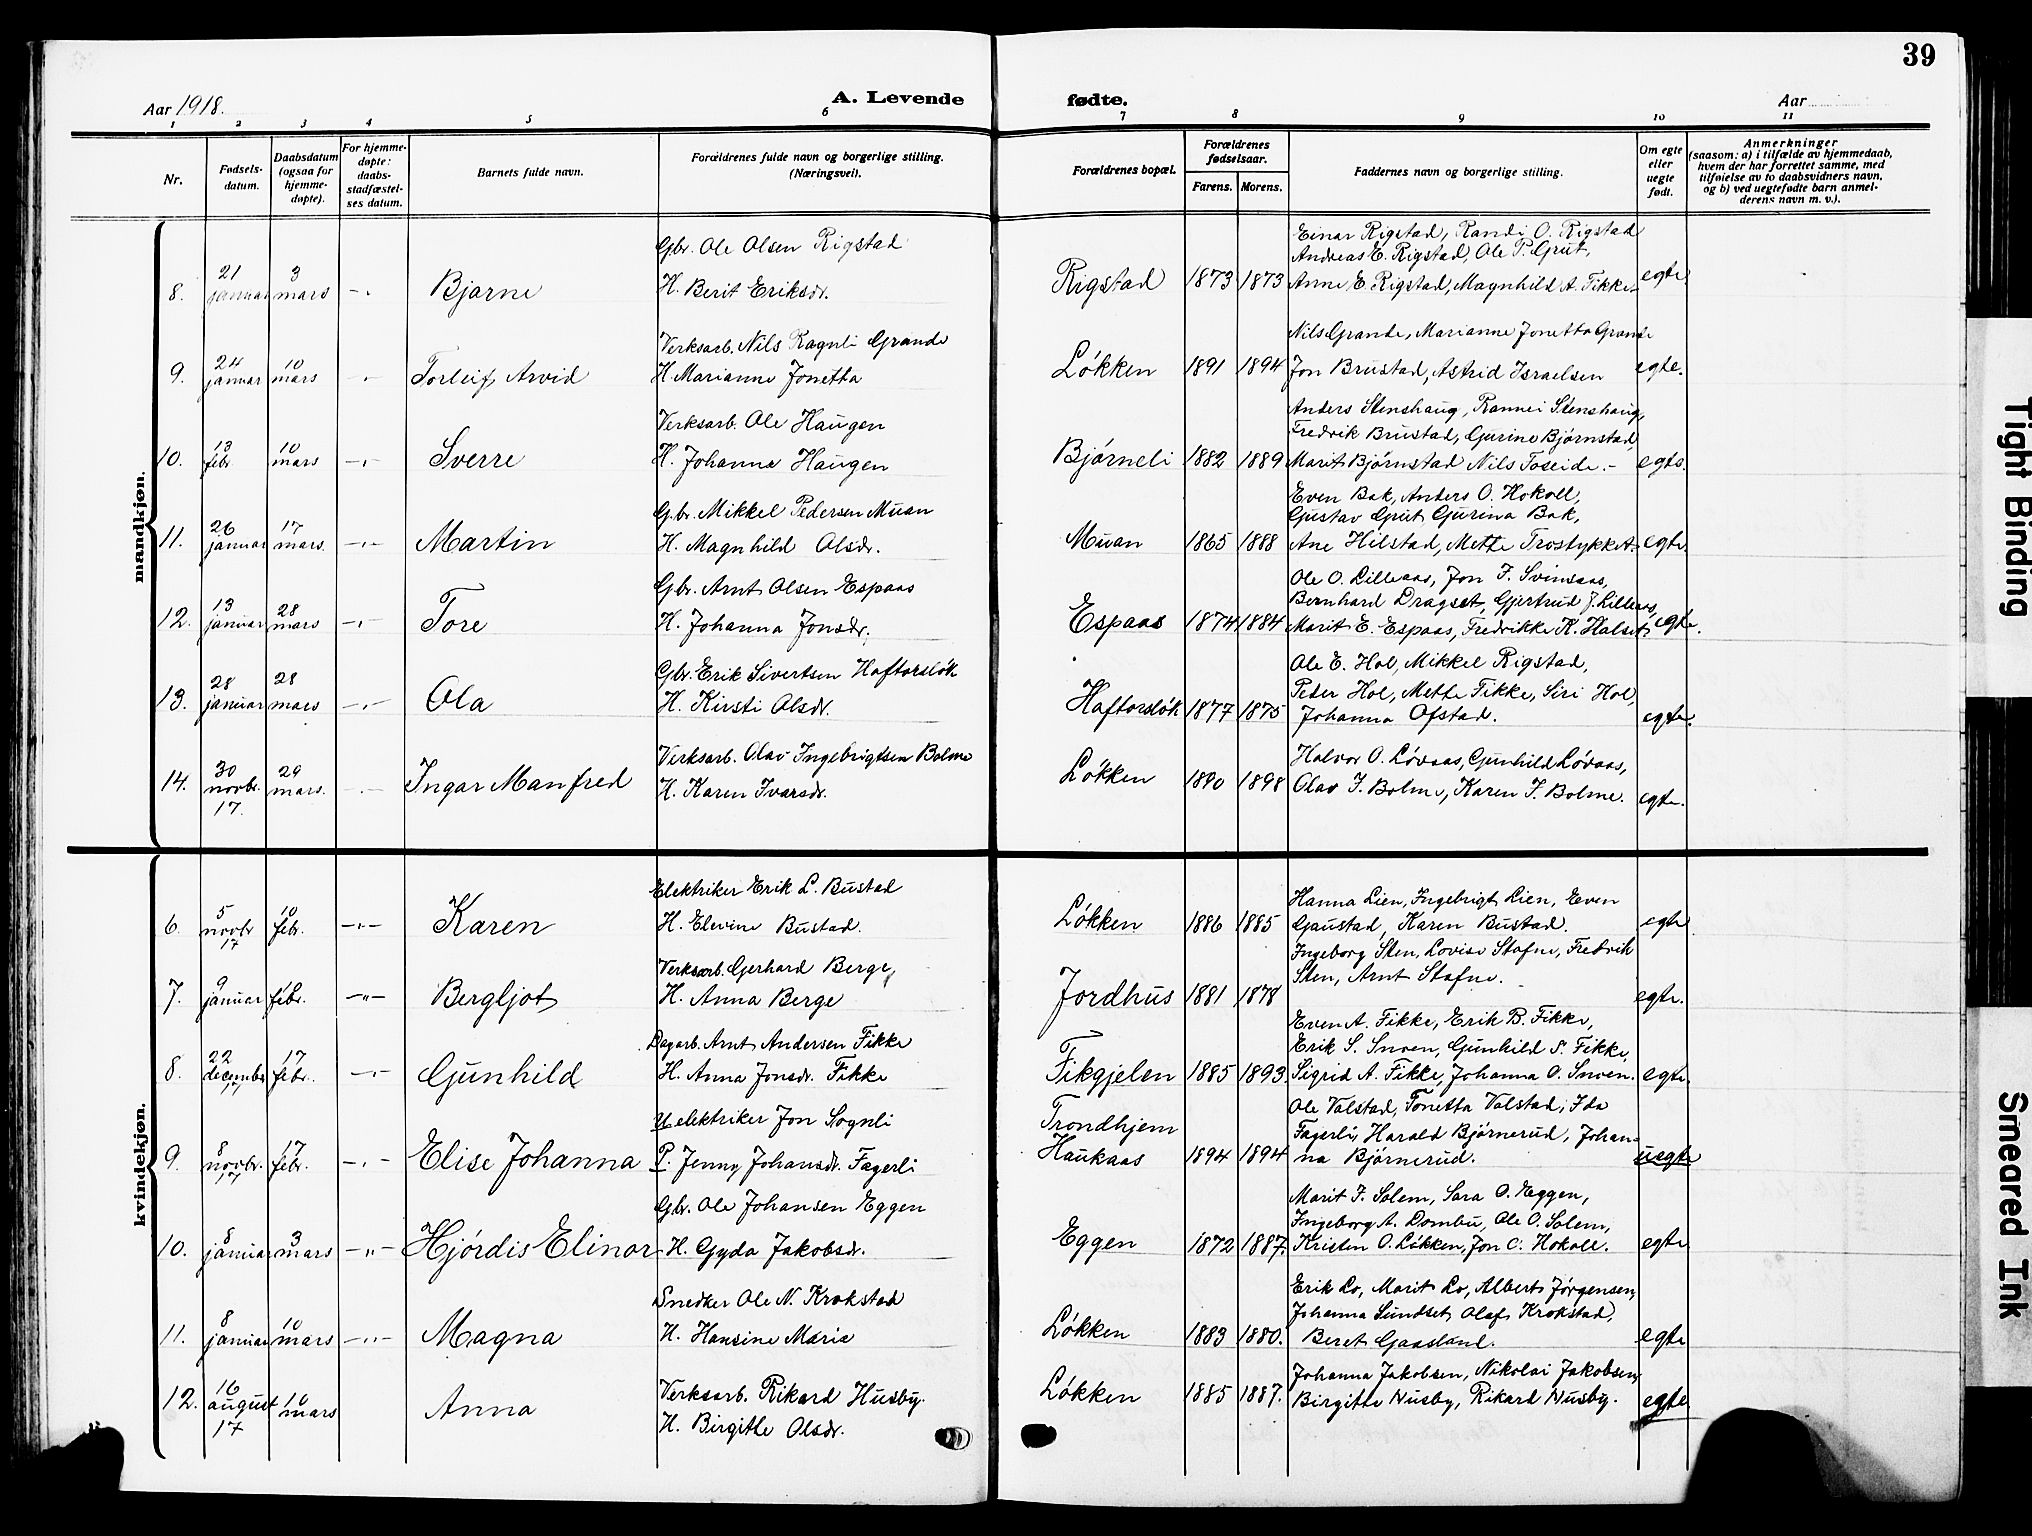 39
Aar 1918.
A. Levende
fødte.
Aar
1 2 3 4 5 6 7 8 9 10 11
Nr.
Fødsels-
datum.
Daabsdatum
(ogsaa for
hjemme-
døpte).
For hjemme-
døpte:
daabs-
stadfæstel-
ses datum.
Barnets fulde navn.
Forældrenes fulde navn og borgerlige stilling.
(Næringsvei).
Forældrenes bopæl.
Forældrenes
fødselsaar.
Farens. Morens.
Faddernes navn og borgerlige stilling.
Om egte
eller
uegte
født.
Anmerkninger
(saasom: a) i tilfælde av hjemmedaab,
hvem der har forrettet samme, med
tilføielse av to daabsvidners navn,
og b) ved uegtefødte barn anmel-
derens navn m. v.).
mandkjøn.
8.
21
januar
3
mars
Bjarne
Gbr. Ole Olsen Rigstad
H. Berit Eriksdr.
Rigstad 1873 1873
Einar Rigstad, Randi O. Rigstad
Andreas E. Rigstad, Ole P. Grut,
Anne E. Rigstad, Magnhild A. Fikke
egte
9.
24
januar
10
mars
Torleif Arvid
Verksarb. Nils Ragnli Grande
H. Marianne Jonetta
Løkken 1891 1894
Nils Grande, Marianne Jonetta Grande
Jon Brustad, Astrid Israelsen
egte.
10.
13
febr
10
mars
Sverre
Verksarb. Ole Haugen
H. Johanna Haugen
Bjørneli 1882 1889
Anders Stenshaug, Rannei Stenshaug,
Fredrik Brustad, Gurine Bjørnstad,
Marit Bjørnstad Nils Toseide.-
egte.
11.
26
januar
17
mars.
Martin
Gbr. Mikkel Pedersen Muan
H. Magnhild Olsdr.
Muan 1865 1888
Even Bak, Anders O. Hokoll,
Gustav Grut Gurina Bak,
Ane Hilstad, Mette Trostykket
egte.
12.
13
januar
28
mars
Tore
Gbr. Arnt Olsen Espaas
H. Johanna Jonsdr.
Espaas 1874 1884
Ole O. Lilleaas, Jon J. Svinsaas,
Bernhard Dragset, Gjertrud J. Lilleaas,
Marit E. Espaas, Fredrikke K. Halset
egte.
13.
28
januar
28
mars
Ola
Gbr. Erik Sivertsen Haftorsløk
H. Kirsti Olsdr.
Haftorsløk 1877 1875
Ole E. Hol, Mikkel Rigstad,
Peder Hol, Mette Fikke, Siri Hol,
Johanna Ofstad.
egte.
14.
30
novbr.
17.
29
mars.
Ingar Manfred
Verksarb. Olav Ingebrigtsen Bolme
H. Karen Ivarsdr.
Løkken 1890 1898
Halvor O. Løvaas, Gunhild Løvaas,
Olav I. Bolme, Karen I. Bolme.
egte.
kvindekjøn.
6.
5
novbr
17
10
febr.
Karen
Elektriker Erik L. Bustad
H. Elevine Bustad.
Løkken 1886 1885
Hanna Lien, Ingebrigt Lien, Even
Gaustad, Karen Bustad.
egte
7.
9
januar
febr.
Bergljot
Verksarb. Gerhard Berge,
H. Anna Berge
Jordhus 1881 1878
Ingeborg Sten, Lovise Stafne, Fredrik
Sten, Arnt Stafne.
egte.
8.
22
december
17
17
febr.
Gunhild
Dagarb. Arnt Andersen Fikke
H. Anna Jonsdr. Fikke
Fikgjelen 1885 1893.
Even A. Fikke, Erik B. Fikke,
Erik S. Snoen, Gunhild S. Fikke,
Sigrid A. Fikke, Johanna O. Snoen.
egte.
9.
8
novbr.
17
17
febr.
Elise Johanna
U. elektriker Jon Sognli
P. Jenny Johansdr. Fagerli
Trondhjem
Haukaas 1894 1894
Ole Valstad, Tonetta Valstad, Ida
Fagerli, Harald Bjørnerud, Johan-
na Bjørnerud.
uegte
10.
8
januar
3
mars
Hjørdis Elinor
Gbr. Ole Johansen Eggen
H. Gyda Jakobsdr.
Eggen 1872 1887.
Marit J. Solem, Sara O. Eggen,
Ingeborg A. Dombu, Ole O. Solem,
Kristen O. Løkken, Jon C. Hokoll.
egte
11.
8
januar
10
mars
Magna
Snedker Ole N. Krokstad
H. Hansine Marie
Løkken 1883 1880.
Erik Lo, Marit Lo, Albert Jørgensen,
Johanna Sundset, Olaf Krokstad,
Beret Gaasland.
egte
12.
16
august
17
10
mars
Anna
Verksarb. Rikard Husby.
H. Birgitte Olsdr.
Løkken 1885 1887.
Johanna Jakobsen, Nikolai Jakobsen,
Birgitte Husby, Rikard Husby.
egte
Tight Binding
Smeared Ink